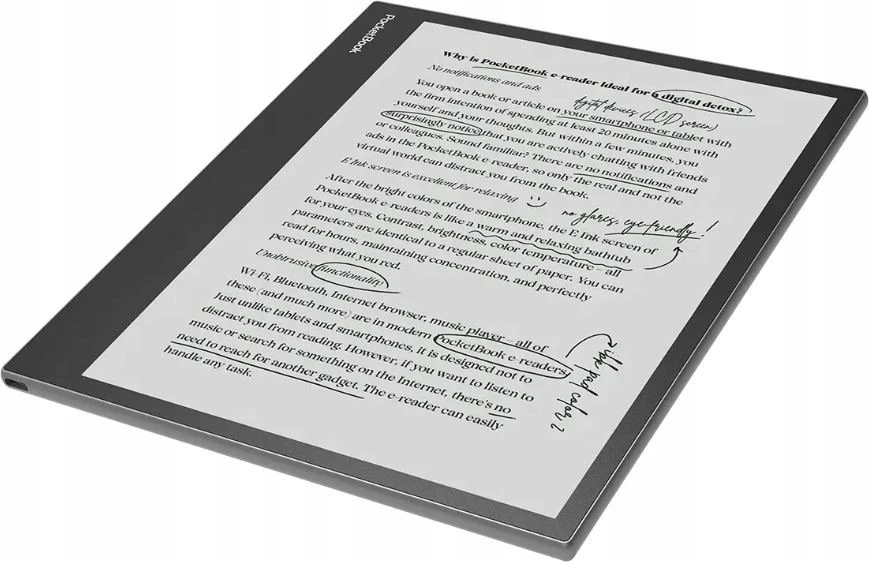 PocketBook
Why is PocketBook e-reader ideal for a digital detox?
No notifications and ads
digital devices (LCD screen)
You open a book or article on your smartphone or tablet with
the firm intention of spending at least 20 minutes alone with
yourself and your thoughts. But within a few minutes, you
surprisingly notice that you are actively chatting with friends
or colleagues. Sound familiar? There are no notifications and
ads in the PocketBook e-reader, so only the real and not the
virtual world can distract you from the book.
E Ink screen is excellent for relaxing
no glares, eye-friendly!
After the bright colors of the smartphone, the E Ink screen of
PocketBook e-readers is like a warm and relaxing bathtub
for your eyes. Contrast, brightness, color temperature – all
parameters are identical to a regular sheet of paper. You can
read for hours, maintaining concentration, and perfectly
perceiving what you red.
Unobtrusive functionality
Wi-Fi, Bluetooth, Internet browser, music player – all of
these (and much more) are in modern PocketBook e-readers.
Just unlike tablets and smartphones, it is designed not to
distract you from reading. However, if you want to listen to
music or search for something on the Internet, there's no
need to reach for another gadget. The e-reader can easily
handle any task.
pad color 2